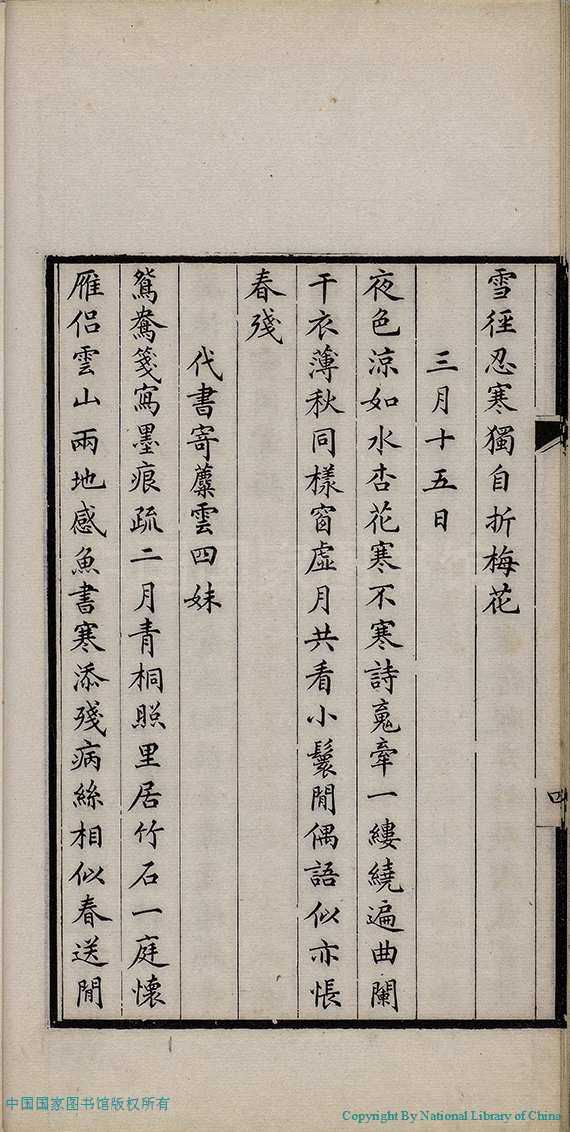 雪徑忍寒獨自折梅花
三月十五日
夜色涼如水杏花寒不寒詩䰟牽一縷繞遍曲闌
干衣薄秋同樣窗虛月共看小鬟閒偶語似亦悵
春殘
代書寄蘪雲四妹
鴛鴦箋寫墨痕疏二月青桐照里居竹石一庭懷
雁侶雲山兩地感魚書寒添殘病絲相似春送閒
四
中国国家图书馆版权所有
Copyright By National Library of China